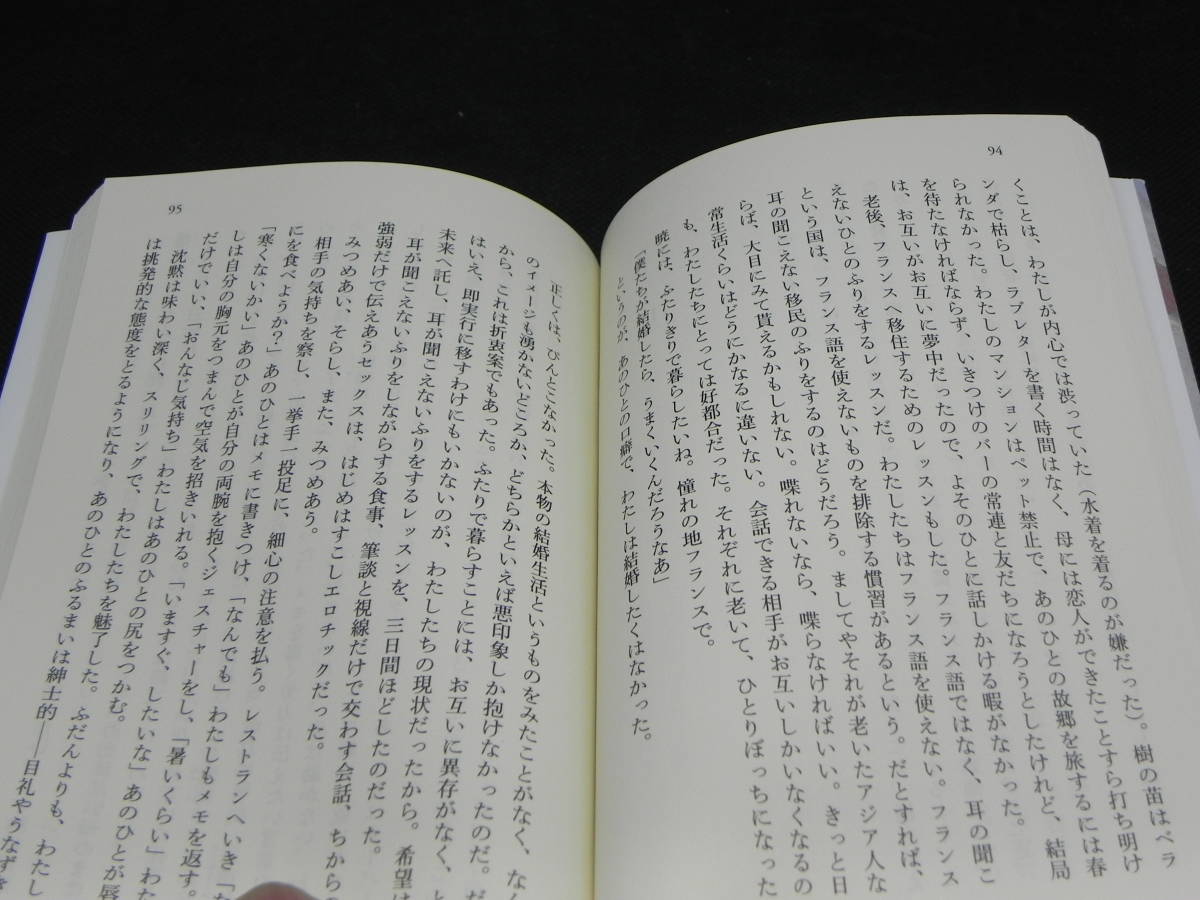 94
くことは、わたしが内心では渋っていた（水着を着るのが嫌だった）。樹の苗はベラ
ンダで枯らし、ラブレターを書く時間はなく、母には恋人ができたことすら打ち明け
られなかった。わたしのマンションはペット禁止で、あのひとの故郷を旅するには春
を待たなければならず、いきつけのバーの常連と友だちになろうとしたけれど、結局
は、お互いがお互いに夢中だったので、よそのひとに話しかける暇がなかった。
老後、フランスへ移住するためのレッスンもした。フランス語ではなく、耳の聞こ
えないひとのふりをするレッスンだ。わたしたちはフランス語を使えない。フランス
という国は、フランス語を使えないものを排除する慣習があるという。だとすれば、
耳の聞こえない移民のふりをするのはどうだろう。ましてやそれが老いたアジア人な
らば、大目にみて貰えるかもしれない。喋れないなら、喋らなければいい。きっと日
常生活くらいはどうにかなるに違いない。会話できる相手がお互いしかいなくなるの
も、わたしたちにとっては好都合だった。それぞれに老いて、ひとりぼっちになった
暁には、ふたりきりで暮らしたいね。憧れの地フランスで。
「僕たちが結婚したら、うまくいくんだろうなあ」
というのが、あのひとの口癖で、わたしは結婚したくはなかった。
95
正しくは、ぴんとこなかった。本物の結婚生活というものをみたことがなく、な
のイメージも湧かないどころか、どちらかといえば悪印象しか抱けなかったのだ。だ
から、これは折衷案でもあった。ふたりで暮らすことには、お互いに異存がなく、と
はいえ、即実行に移すわけにもいかないのが、わたしたちの現状だったから。希望は
未来へ託し、耳が聞こえないふりをするレッスンを、三日間ほどしたのだった。
耳が聞こえないふりをしながらする食事、筆談と視線だけで交わす会話、ちから
強弱だけで伝えあうセックスは、はじめはすこしエロチックだった。
みつめあい、そらし、また、みつめあう。
相手の気持ちを察し、一挙手一投足に、細心の注意を払う。レストランへいき「な
にを食べようか？」あのひとはメモに書きつけ、「なんでも」わたしもメモを返す。
「寒くないかい」あのひとが自分の両腕を抱くジェスチャーをし、「暑いくらい」わた
しは自分の胸元をつまんで空気を招きいれる。「いますぐ、したいな」あのひとが唇
だけでいい、「おんなじ気持ち」わたしはあのひとの尻をつかむ。
沈黙は味わい深く、スリリングで、わたしたちを魅了した。ふだんよりも、わたし
は挑発的な態度をとるようになり、あのひとのふるまいは紳士的――目礼やうなずき